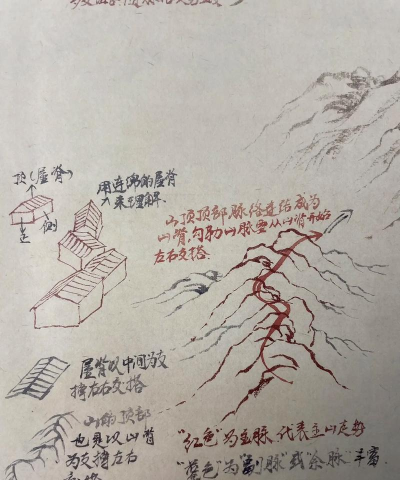 顶(屋脊)
侧
用连绵的屋脊
来理解.
山顶顶部脉络连结成为
山脊,勾勒山脉要从山脊开始
左右交搭.
屋脊以中间为支
撑左右交搭
山的顶部
也是以山脊
为支撑左右
"红色"为主脉,代表主山走势
"蓝色"为"副脉"或"余脉"丰富.